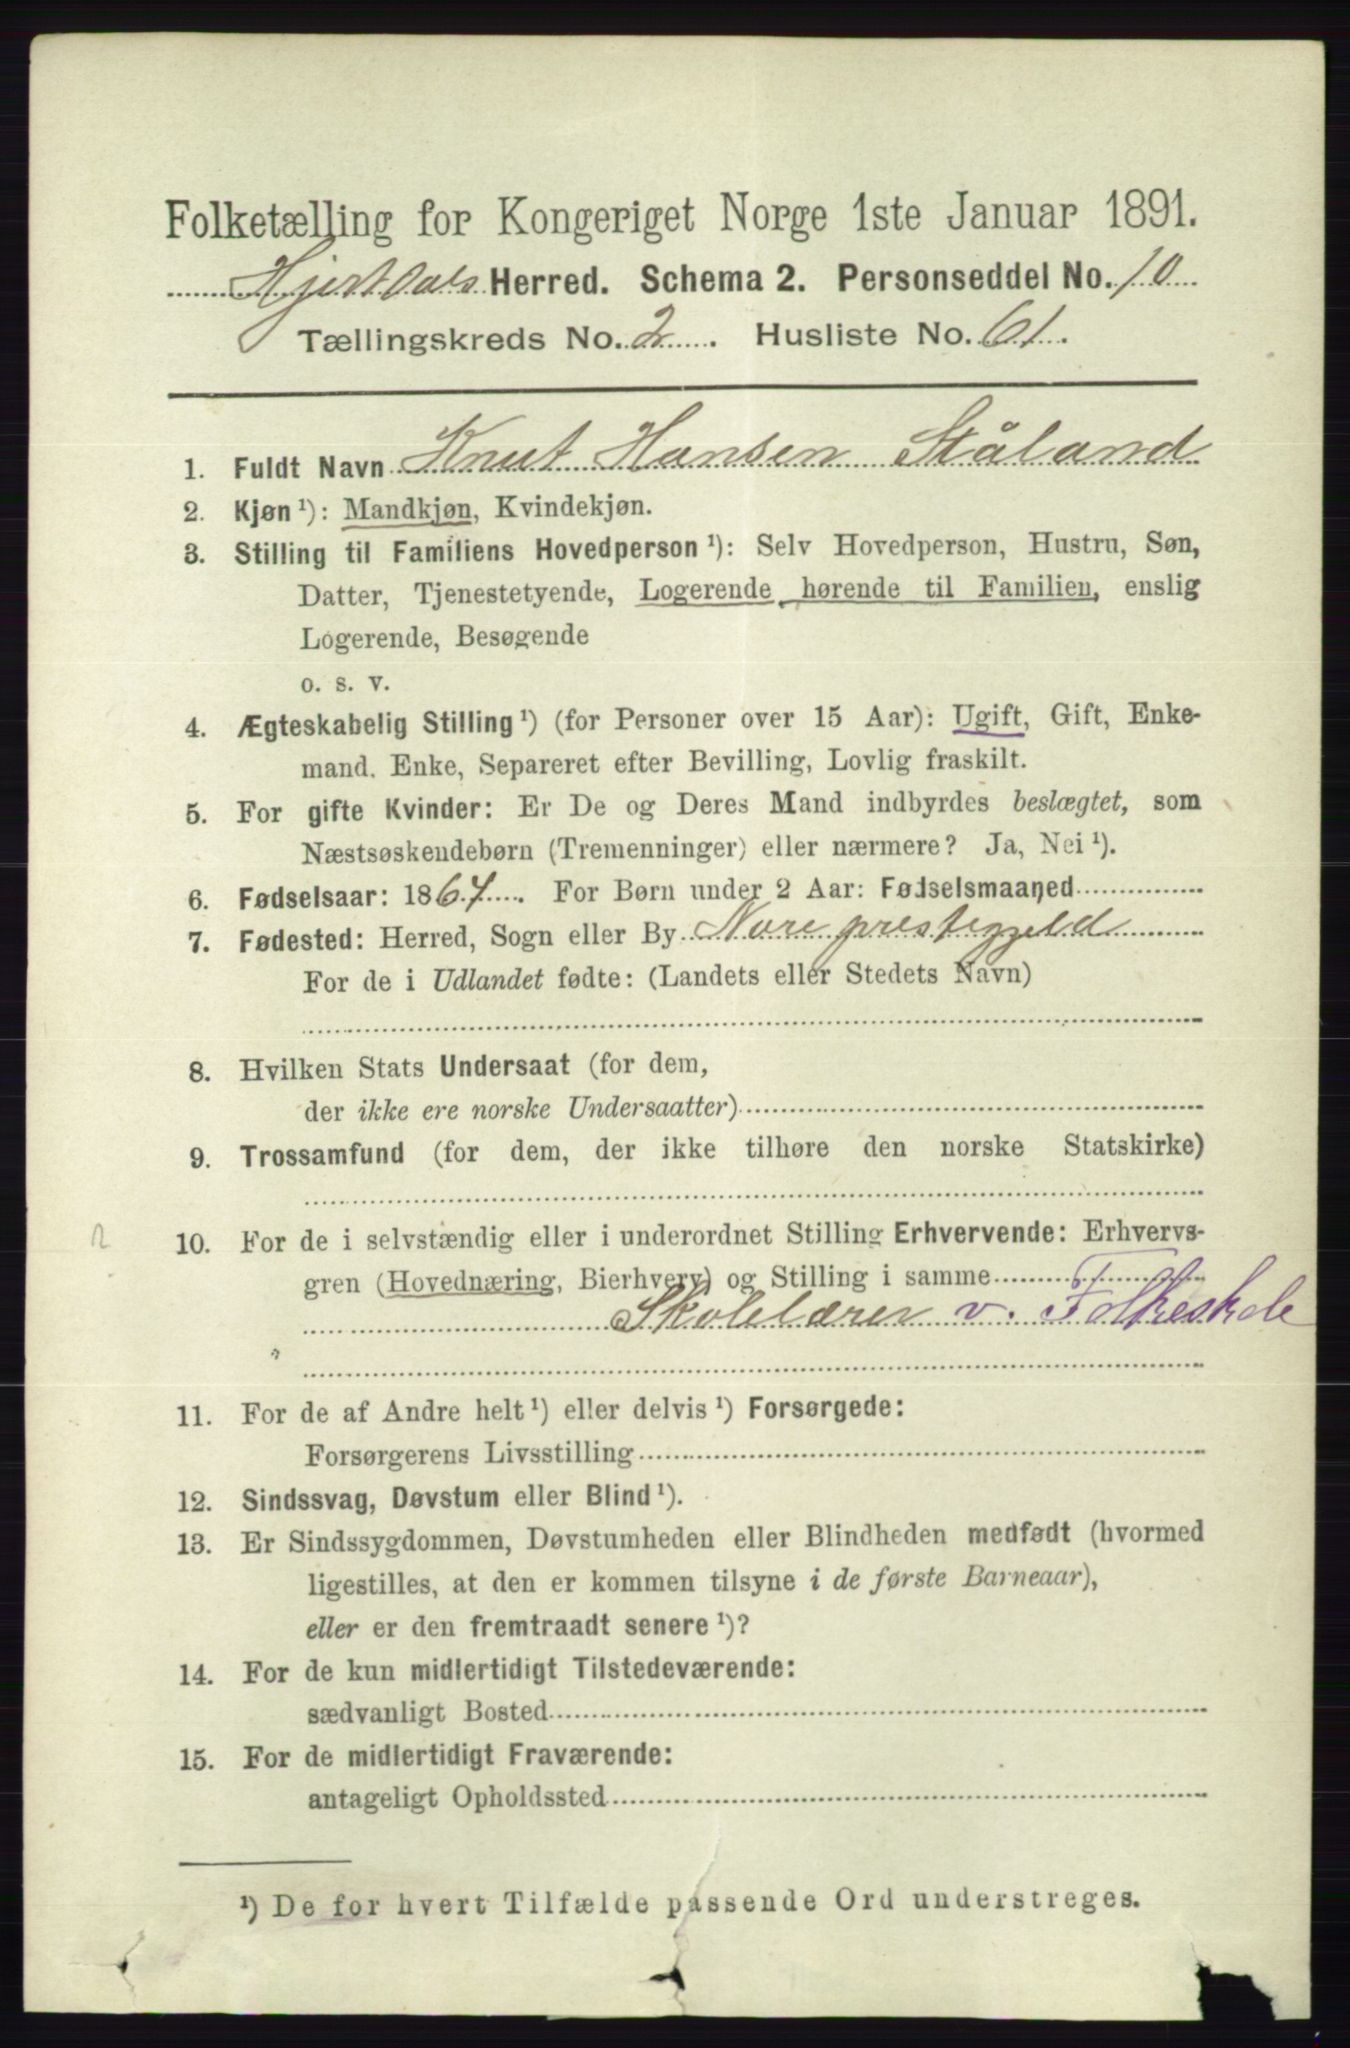 Folketælling for Kongeriget Norge 1ste Januar 1891.
Hjertdals Herred. Schema 2. Personseddel No. 10
Tællingskreds No. 2. Husliste No. 61.
1. Fuldt Navn Knut Hansen Ståland
2. Kjøn ¹): Mandkjøn, Kvindekjøn.
3. Stilling til Familiens Hovedperson ¹): Selv Hovedperson, Hustru, Søn,
Datter, Tjenestetyende, Logerende hørende til Familien, enslig
Logerende, Besøgende
o. s. v.
4. Ægteskabelig Stilling ¹) (for Personer over 15 Aar): Ugift, Gift, Enke-
mand, Enke, Separeret efter Bevilling, Lovlig fraskilt.
5. For gifte Kvinder: Er De og Deres Mand indbyrdes beslægtet, som
Næstsøskendebørn (Tremenninger) eller nærmere? Ja, Nei ¹).
6. Fødselsaar: 1867. For Børn under 2 Aar: Fødselsmaaned
7. Fødested: Herred, Sogn eller By Nore prestegjeld
For de i Udlandet fødte: (Landets eller Stedets Navn)
8. Hvilken Stats Undersaat (for dem,
der ikke ere norske Undersaatter)
9. Trossamfund (for dem, der ikke tilhøre den norske Statskirke)
10. For de i selvstændig eller i underordnet Stilling Erhvervende: Erhvervs-
gren (Hovednæring, Bierhverv) og Stilling i samme
Skolelærer v. Folkeskole
11. For de af Andre helt ¹) eller delvis ¹) Forsørgede:
Forsørgerens Livsstilling
12. Sindssvag, Døvstum eller Blind ¹).
13. Er Sindssygdommen, Døvstumheden eller Blindheden medfødt (hvormed
ligestilles, at den er kommen tilsyne i de første Barneaar),
eller er den fremtraadt senere ¹)?
14. For de kun midlertidigt Tilstedeværende:
sædvanligt Bosted
15. For de midlertidigt Fraværende:
antageligt Opholdssted
¹) De for hvert Tilfælde passende Ord understreges.